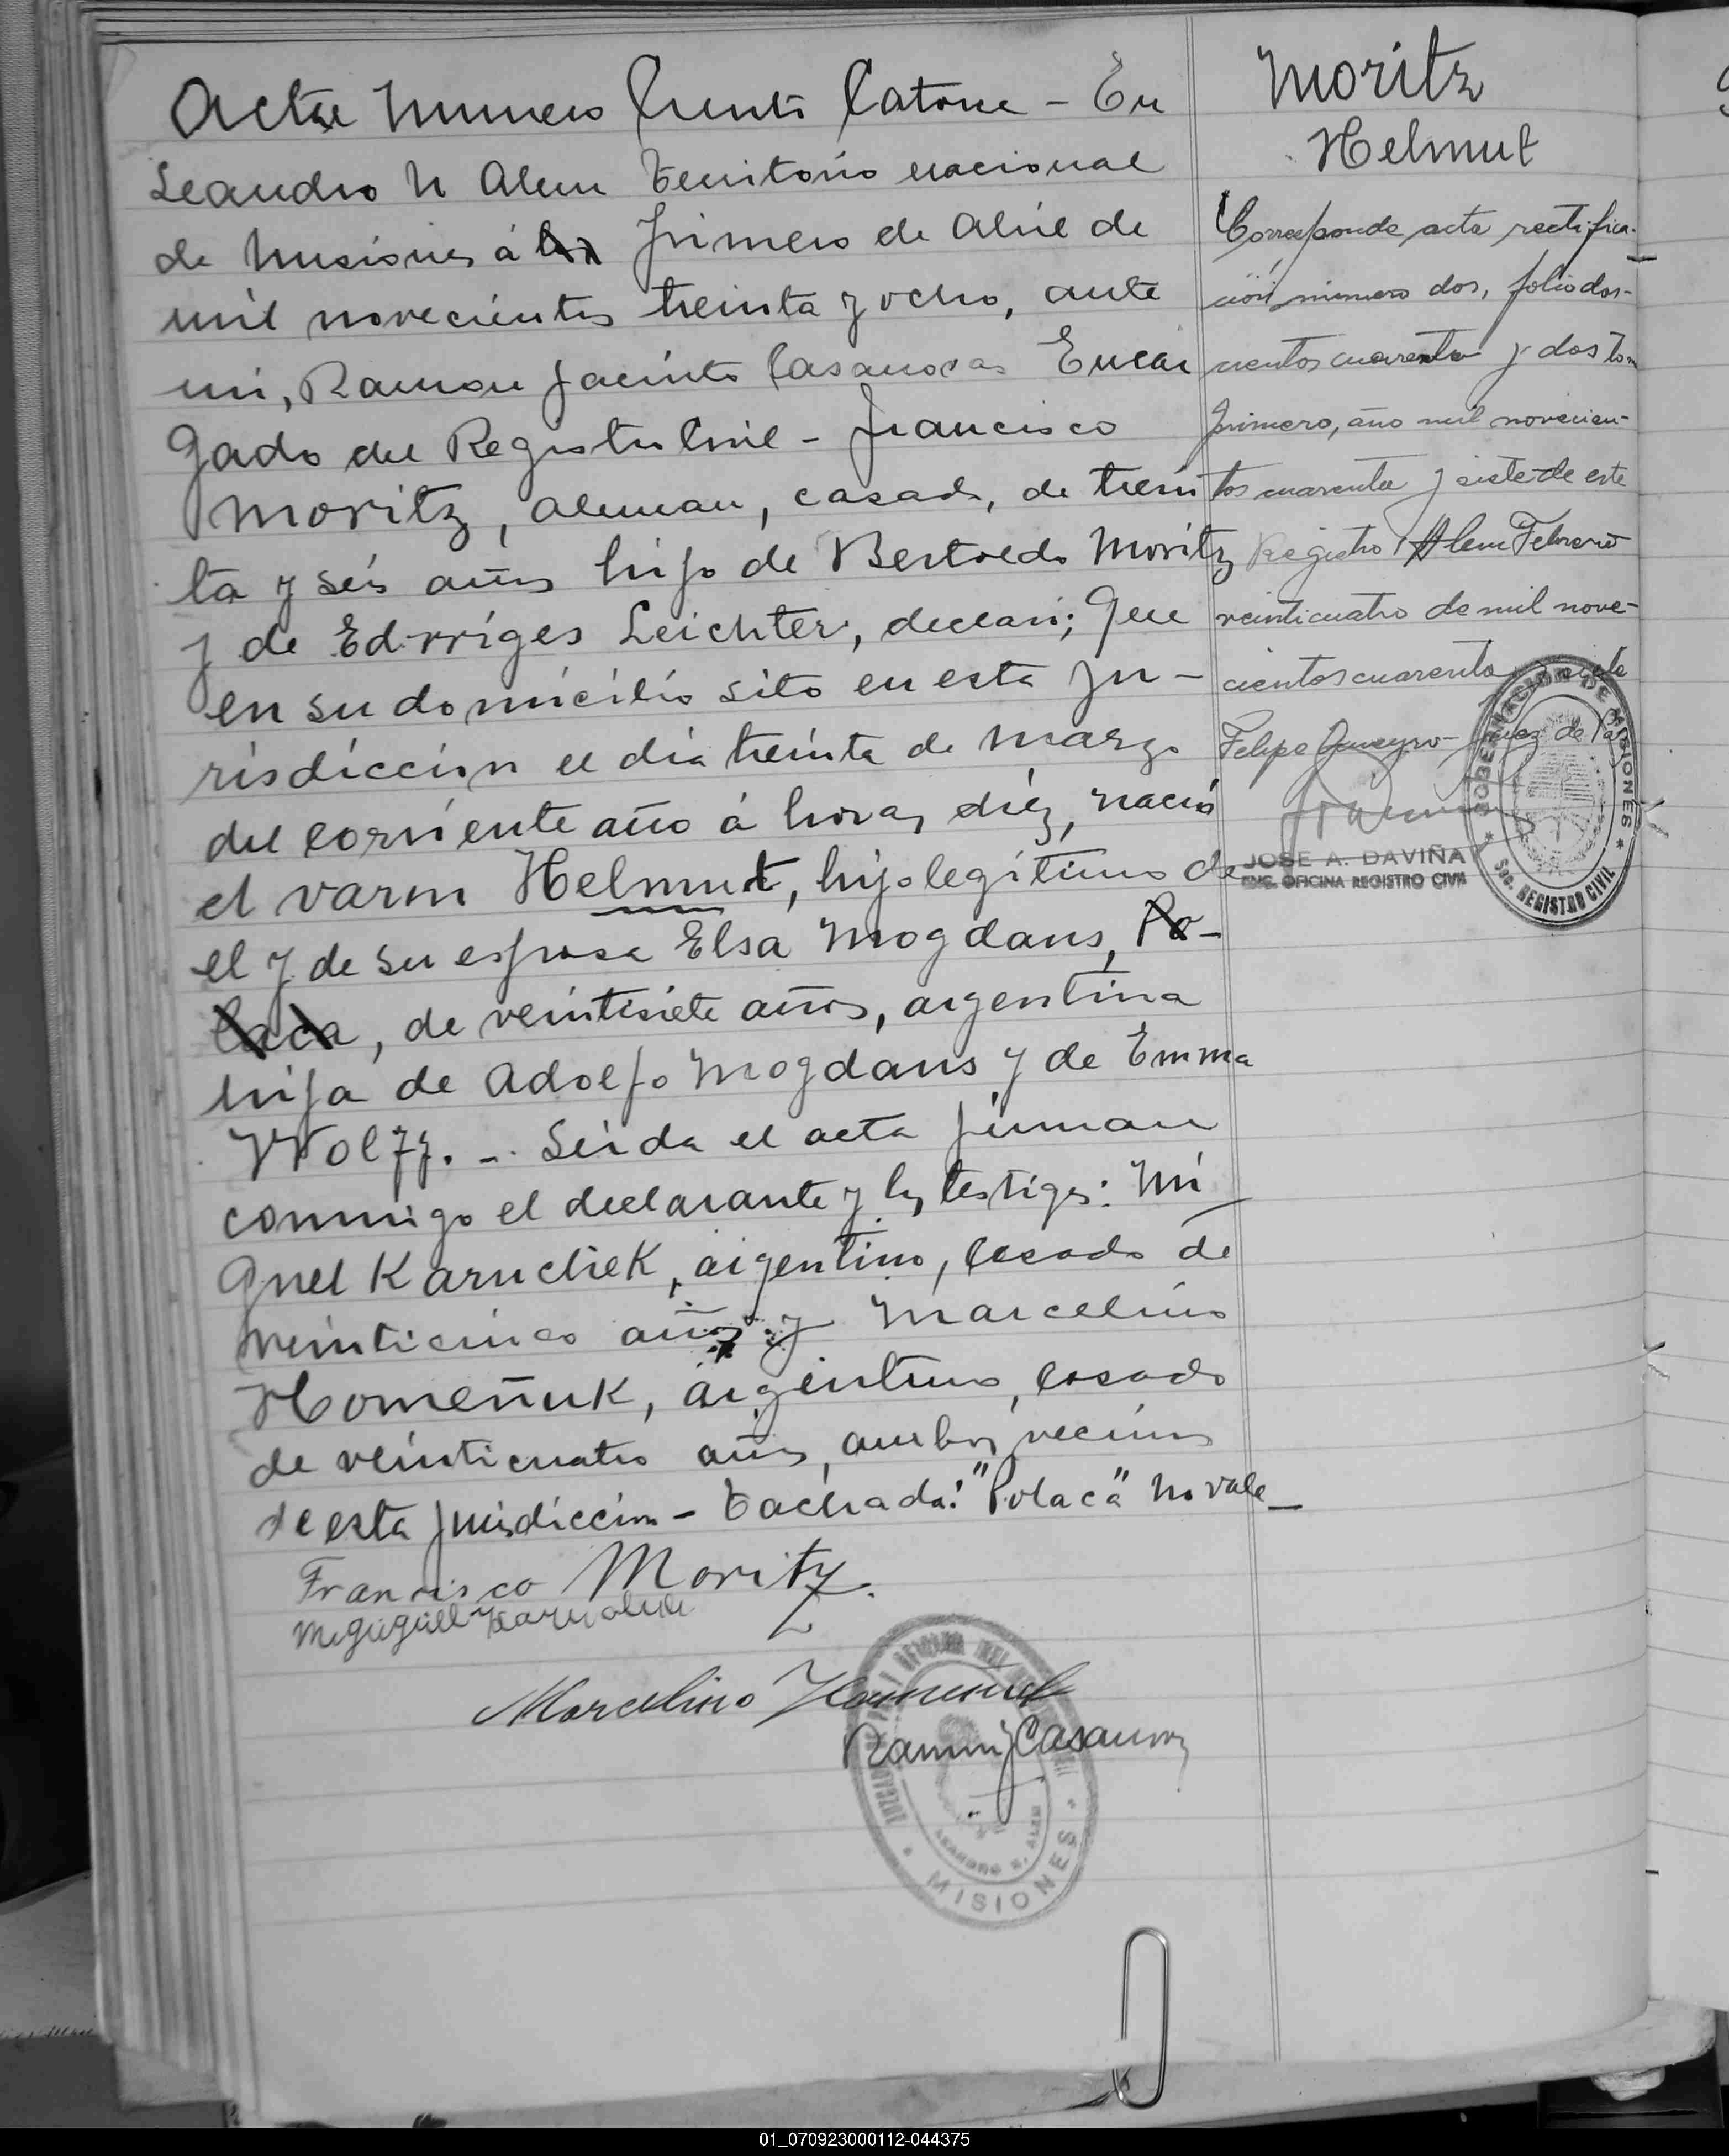 Acta Numero Ciento Catorce - En
Leandro N Alem Territorio nacional
de Misiones á los primero de Abril de
mil novecientos treinta y ocho, ante
mi, Ramon Jacinto Casanovas Encar
gado del Registro Civil - Francisco
Moritz, Aleman, casado, de trein
ta y seis años hijo de Bertoldo Moritz
y de Edwiges Leichter, declaró; Que
en su domicilio sito en esta Ju-
risdiccion el dia treinta de Marzo
del corriente año á horas diéz, nació
el varon Helmut, hijo legitimo de
el y de su esposa Elsa Mogdans, Po-
laca, de veintisiete años, argentina
hija de Adolfo Mogdans y de Emma
Wolff. - Leida el acta firman
conmigo el declarante y los testigos: Mi
guel Karuchek, argentino, casado de
veinticinco años y Marcelino
Homeñuk, argentino, casado
de veinticuatro años, ambos vecinos
de esta jurisdiccion - Tachada: "Polaca" no vale -
Francisco Moritz.
Marcelino Homeñuk
Ramon J Casanovas
MISIONES
LEANDRO N. ALEM
Moritz
Helmut
Corresponde acta rectifica-
ción número dos, folio dos-
cientos cuarenta y dos tomo
primero, año mil novecien-
tos cuarenta y siete de este
Registro Alem Febrero
veinticuatro de mil nove-
cientos cuarenta y siete
Felipe Juez de Paz
JOSE A. DAVIÑA
ENC. OFICINA REGISTRO CIVIL
GOBERNACION DE MISIONES
SOC. REGISTRO CIVIL
01_070923000112-044375